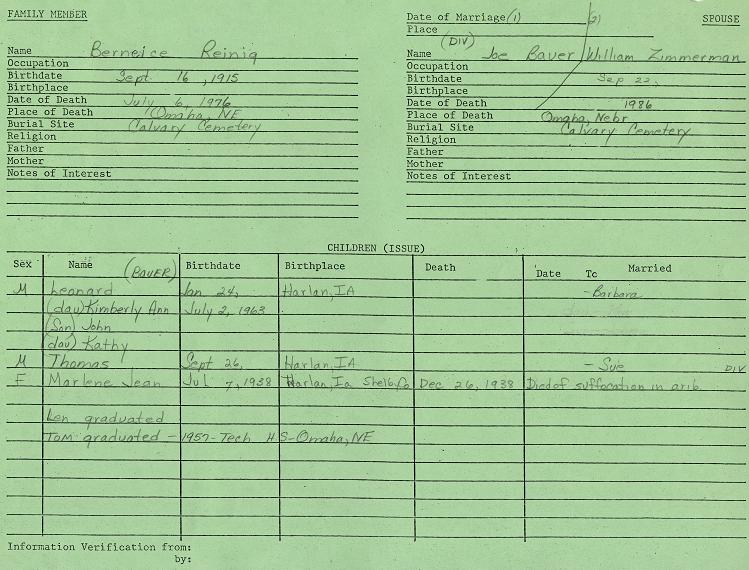 FAMILY MEMBER
Date of Marriage (1) (2) SPOUSE
Place
(DIV)
Name Berneice Reinig
Name Joe Bauer William Zimmerman
Occupation
Occupation
Birthdate Sept 16, 1915
Birthdate Sep 22,
Birthplace
Birthplace
Date of Death July 6, 1976
Date of Death 1986
Place of Death Omaha, NE
Place of Death Omaha, Nebr
Burial Site Calvary Cemetery
Burial Site Calvary Cemetery
Religion
Religion
Father
Father
Mother
Mother
Notes of Interest
Notes of Interest
CHILDREN (ISSUE)
Sex Name (BAUER) Birthdate Birthplace Death Date To Married
M Leonard Jan 24, Harlan, IA - Barbara
(dau) Kimberly Ann July 2, 1963
(Son) John
(dau) Kathy
M Thomas Sept 26, Harlan, IA - Sue DIV
F Marlene Jean Jul 7, 1938 Harlan, Ia Shelb, Co Dec 26, 1938 Died of suffocation in crib
Len graduated
Tom graduated - 1957 - Tech HS - Omaha, NE
Information Verification from:
by: